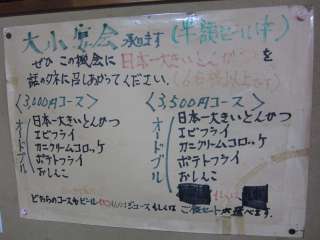 大小宴会 承ります (半額ビール付)
ぜひ この機会に 日本一大きいとんかつを
話のタネに召しあがってください。
〈3,000円コース〉
オードブル
日本一大きいとんかつ
エビフライ
カニクリームコロッケ
ポテトフライ
おしんこ
〈3,500円コース〉
オードブル
日本一大きいとんかつ
エビフライ
カニクリームコロッケ
ポテトフライ
おしんこ
どちらのコースもビール